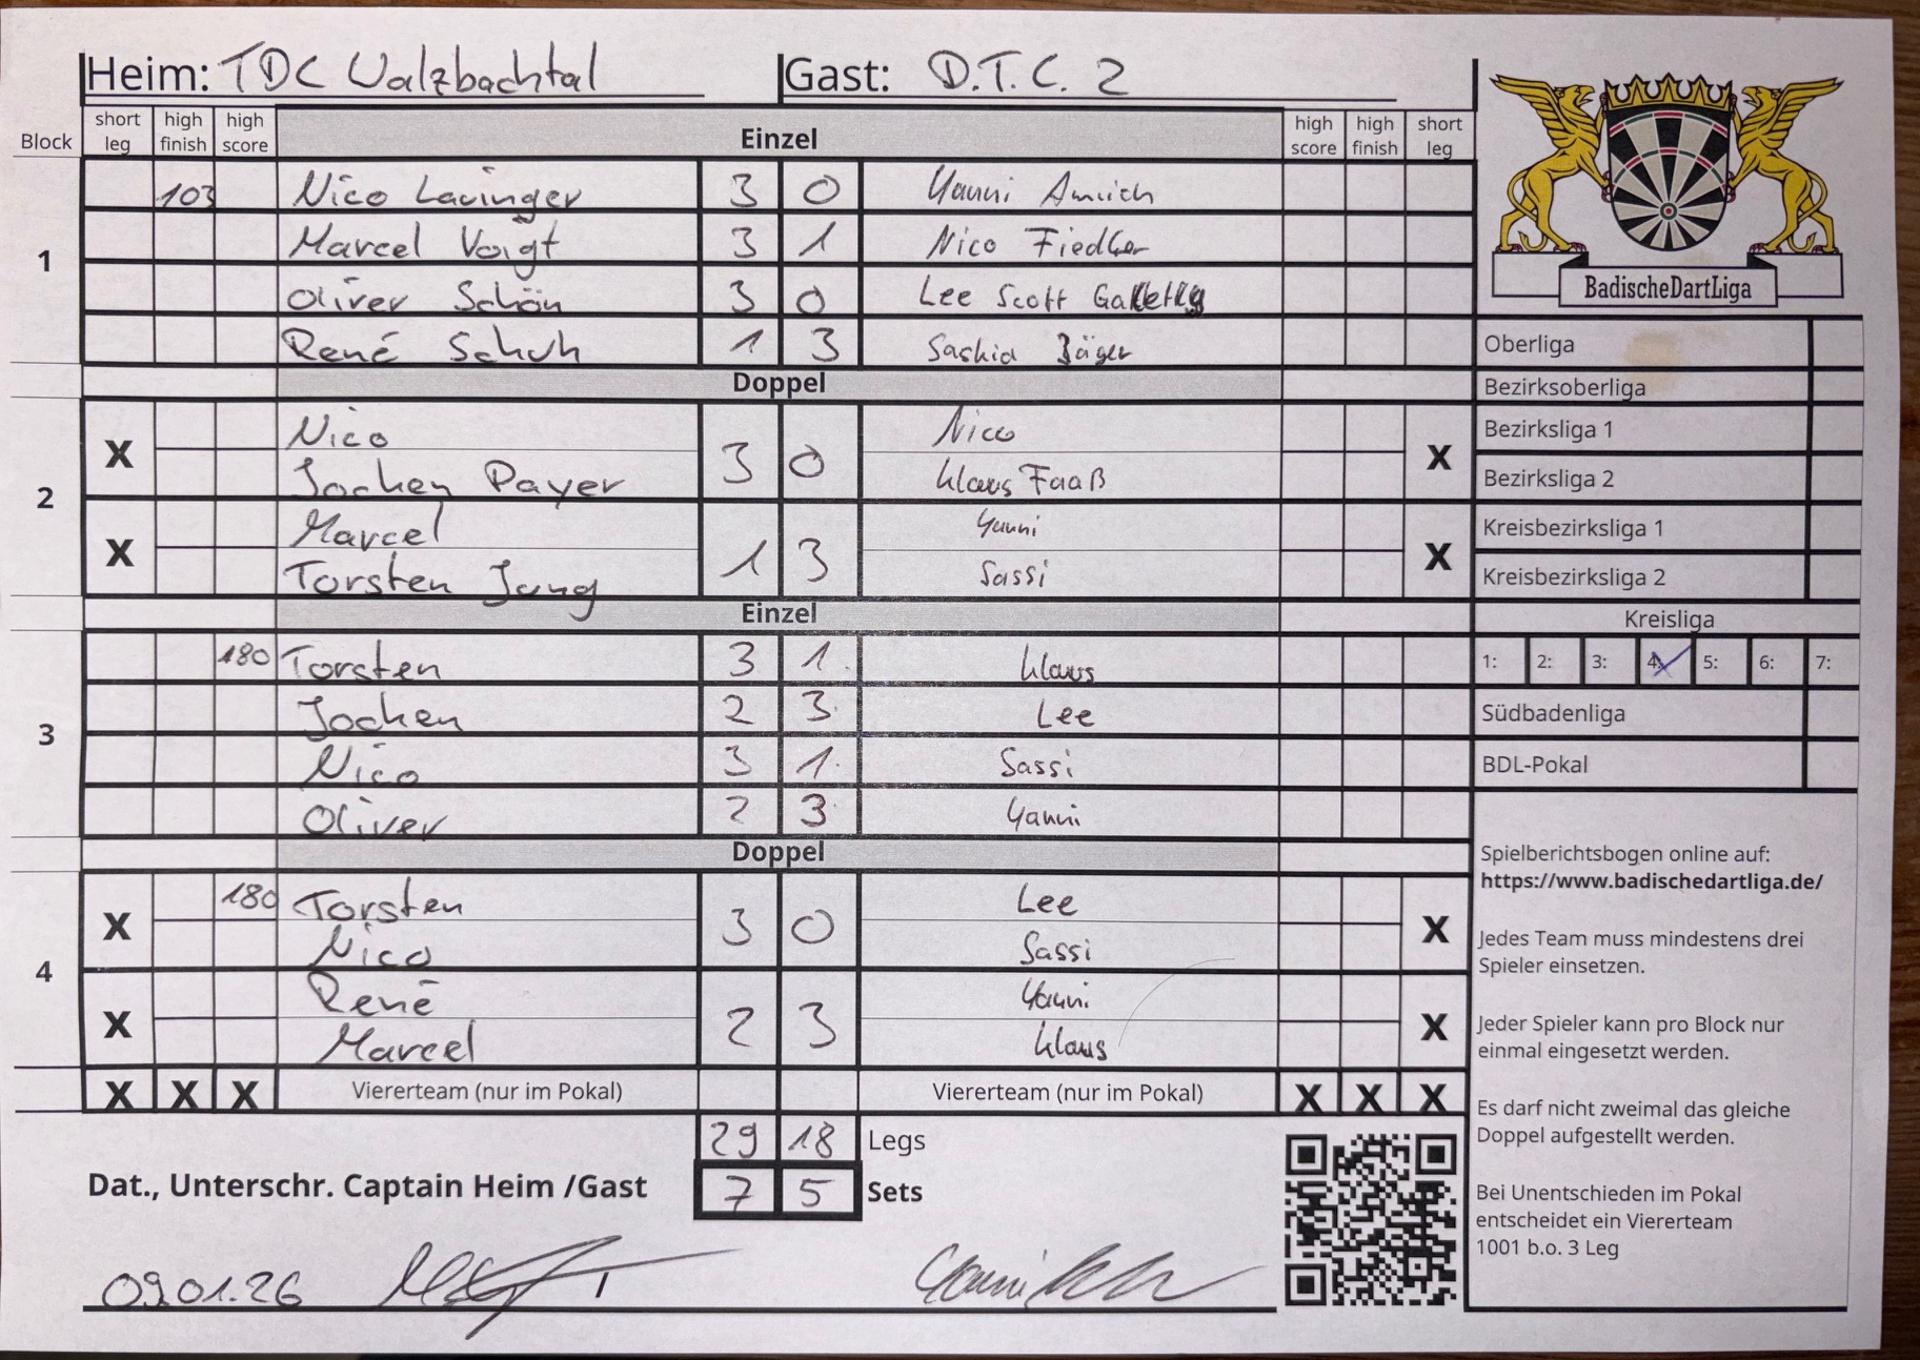 Heim: TDC Walzbachtal Gast: D.T.C. 2
Block short leg high finish high score Einzel high score high finish short leg
1
103 Nico Lavinger 3 0 Yanni Amrich
Marcel Voigt 3 1 Nico Fiedler
Oliver Schön 3 0 Lee Scott
René Schuh 1 3 Saskia Jäger
Doppel
2
X Nico 3 0 Nico X
Jochen Payer Klaus Faaß
X Marcel 1 3 Yanni X
Torsten Jung Sassi
Einzel
3
180 Torsten 3 1 Klaus
Jochen 2 3 Lee
Nico 3 1 Sassi
Oliver 2 3 Yanni
Doppel
4
X 180 Torsten 3 0 Lee X
Nico Sassi
X René 2 3 Yanni X
Marcel Klaus
X X X Viererteam (nur im Pokal) Viererteam (nur im Pokal) X X X
29 18 Legs
Dat., Unterschr. Captain Heim /Gast 7 5 Sets
09.01.26
BadischeDartLiga
Oberliga
Bezirksoberliga
Bezirksliga 1
Bezirksliga 2
Kreisbezirksliga 1
Kreisbezirksliga 2
Kreisliga
1: 2: 3: 4: 5: 6: 7:
Südbadenliga
BDL-Pokal
Spielberichtsbogen online auf:
https://www.badischedartliga.de/
Jedes Team muss mindestens drei
Spieler einsetzen.
Jeder Spieler kann pro Block nur
einmal eingesetzt werden.
Es darf nicht zweimal das gleiche
Doppel aufgestellt werden.
Bei Unentschieden im Pokal
entscheidet ein Viererteam
1001 b.o. 3 Leg